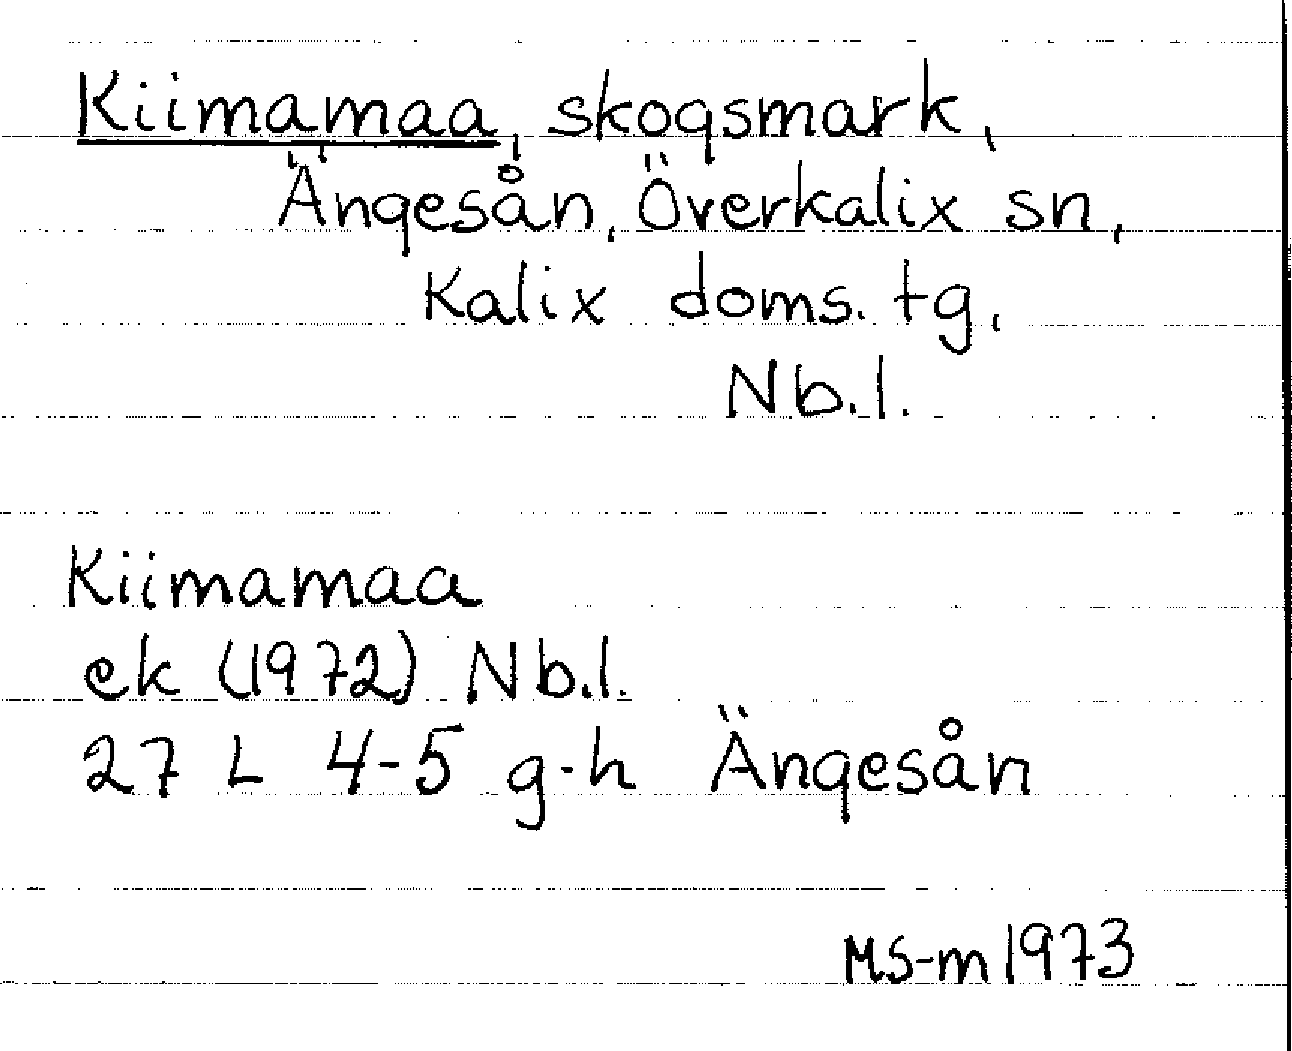 Kiimamaa, skogsmark,
Ängesån, Överkalix sn,
Kalix doms. tg,
Nb.l.
Kiimamaa
ek (1972) Nb.l.
27 L 4-5 g-h Ängesån
MS-m 1973